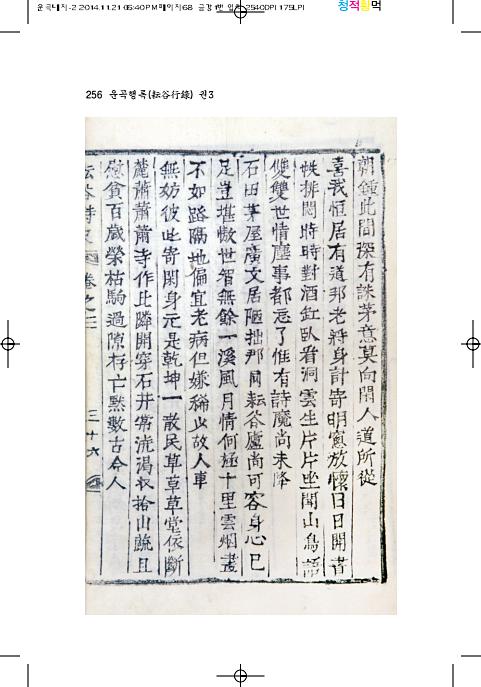 윤곡내지-2 2014.11.21 05:40 PM 페이지68 2540DPI 175LPI
청적황먹
256 운곡행록(耘谷行錄) 권3
朝鍾此間深有誅茅意莫向閑人道所從
喜我恒居有道邦老將身計寄明窓放懷日日開書
帙排悶時時對酒缸臥看洞雲生片片坐聞山鳥語
雙雙世情塵事都忘了惟有詩魔尚未降
石田茅屋廣文居陋拙那同耘谷廬尚可容身心已
足豈堪慠世智無餘一溪風月情何極十里雲烟畫
不如路隔地偏宜老病但嫌稀少故人車
無妨彼此寄閑身元是乾坤一散民草草草堂依斷
麓蕭蕭蕭寺作比隣開穿石井常洗渴收拾山蔬且
慰貧百歲榮枯駒過隙存亡黙數古今人
耘谷詩史 卷之三 三十六